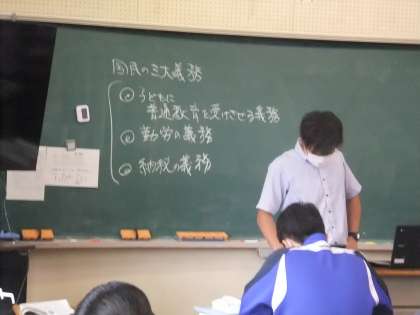 国民の三大義務
子どもに
普通教育を受けさせる義務
勤労の義務
納税の義務